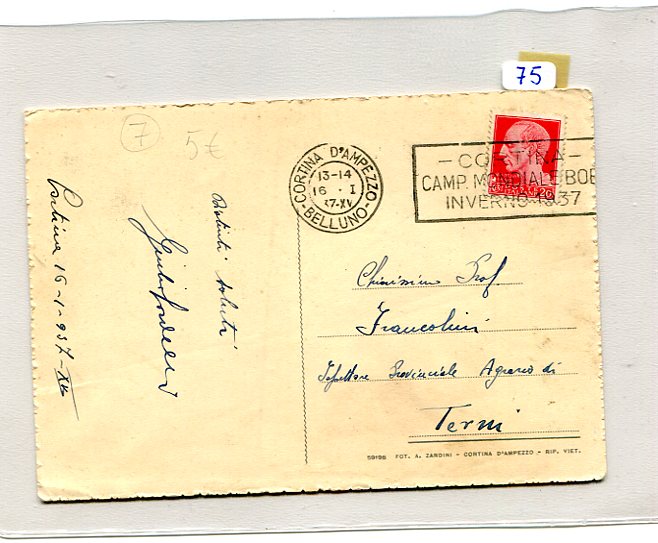 75
7
5€
CORTINA D'AMPEZZO
13-14
16 · I
37-XV
- BELLUNO -
- CORTINA -
CAMP. MONDIALE BOB
INVERNO 1937
Distinti saluti
Cortina 16-1-937-XV
Chiarissimo Prof
Francolini
Ispettore Provinciale Agrario di
Terni
59196 FOT. A. ZARDINI - CORTINA D'AMPEZZO - RIP. VIET.